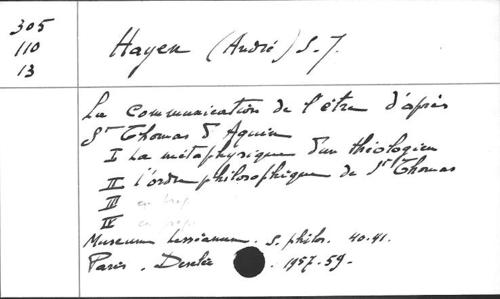 305
110
13
Hayen (André) S. J.
La communication de l'être d'après
St Thomas d'Aquin
I La métaphysique d'un théologien
II l'ordre philosophique de St Thomas
III en prép.
IV en prép.
Museum Lessianum. S. philos. 40.41.
Paris. Desclée. 1957.59.